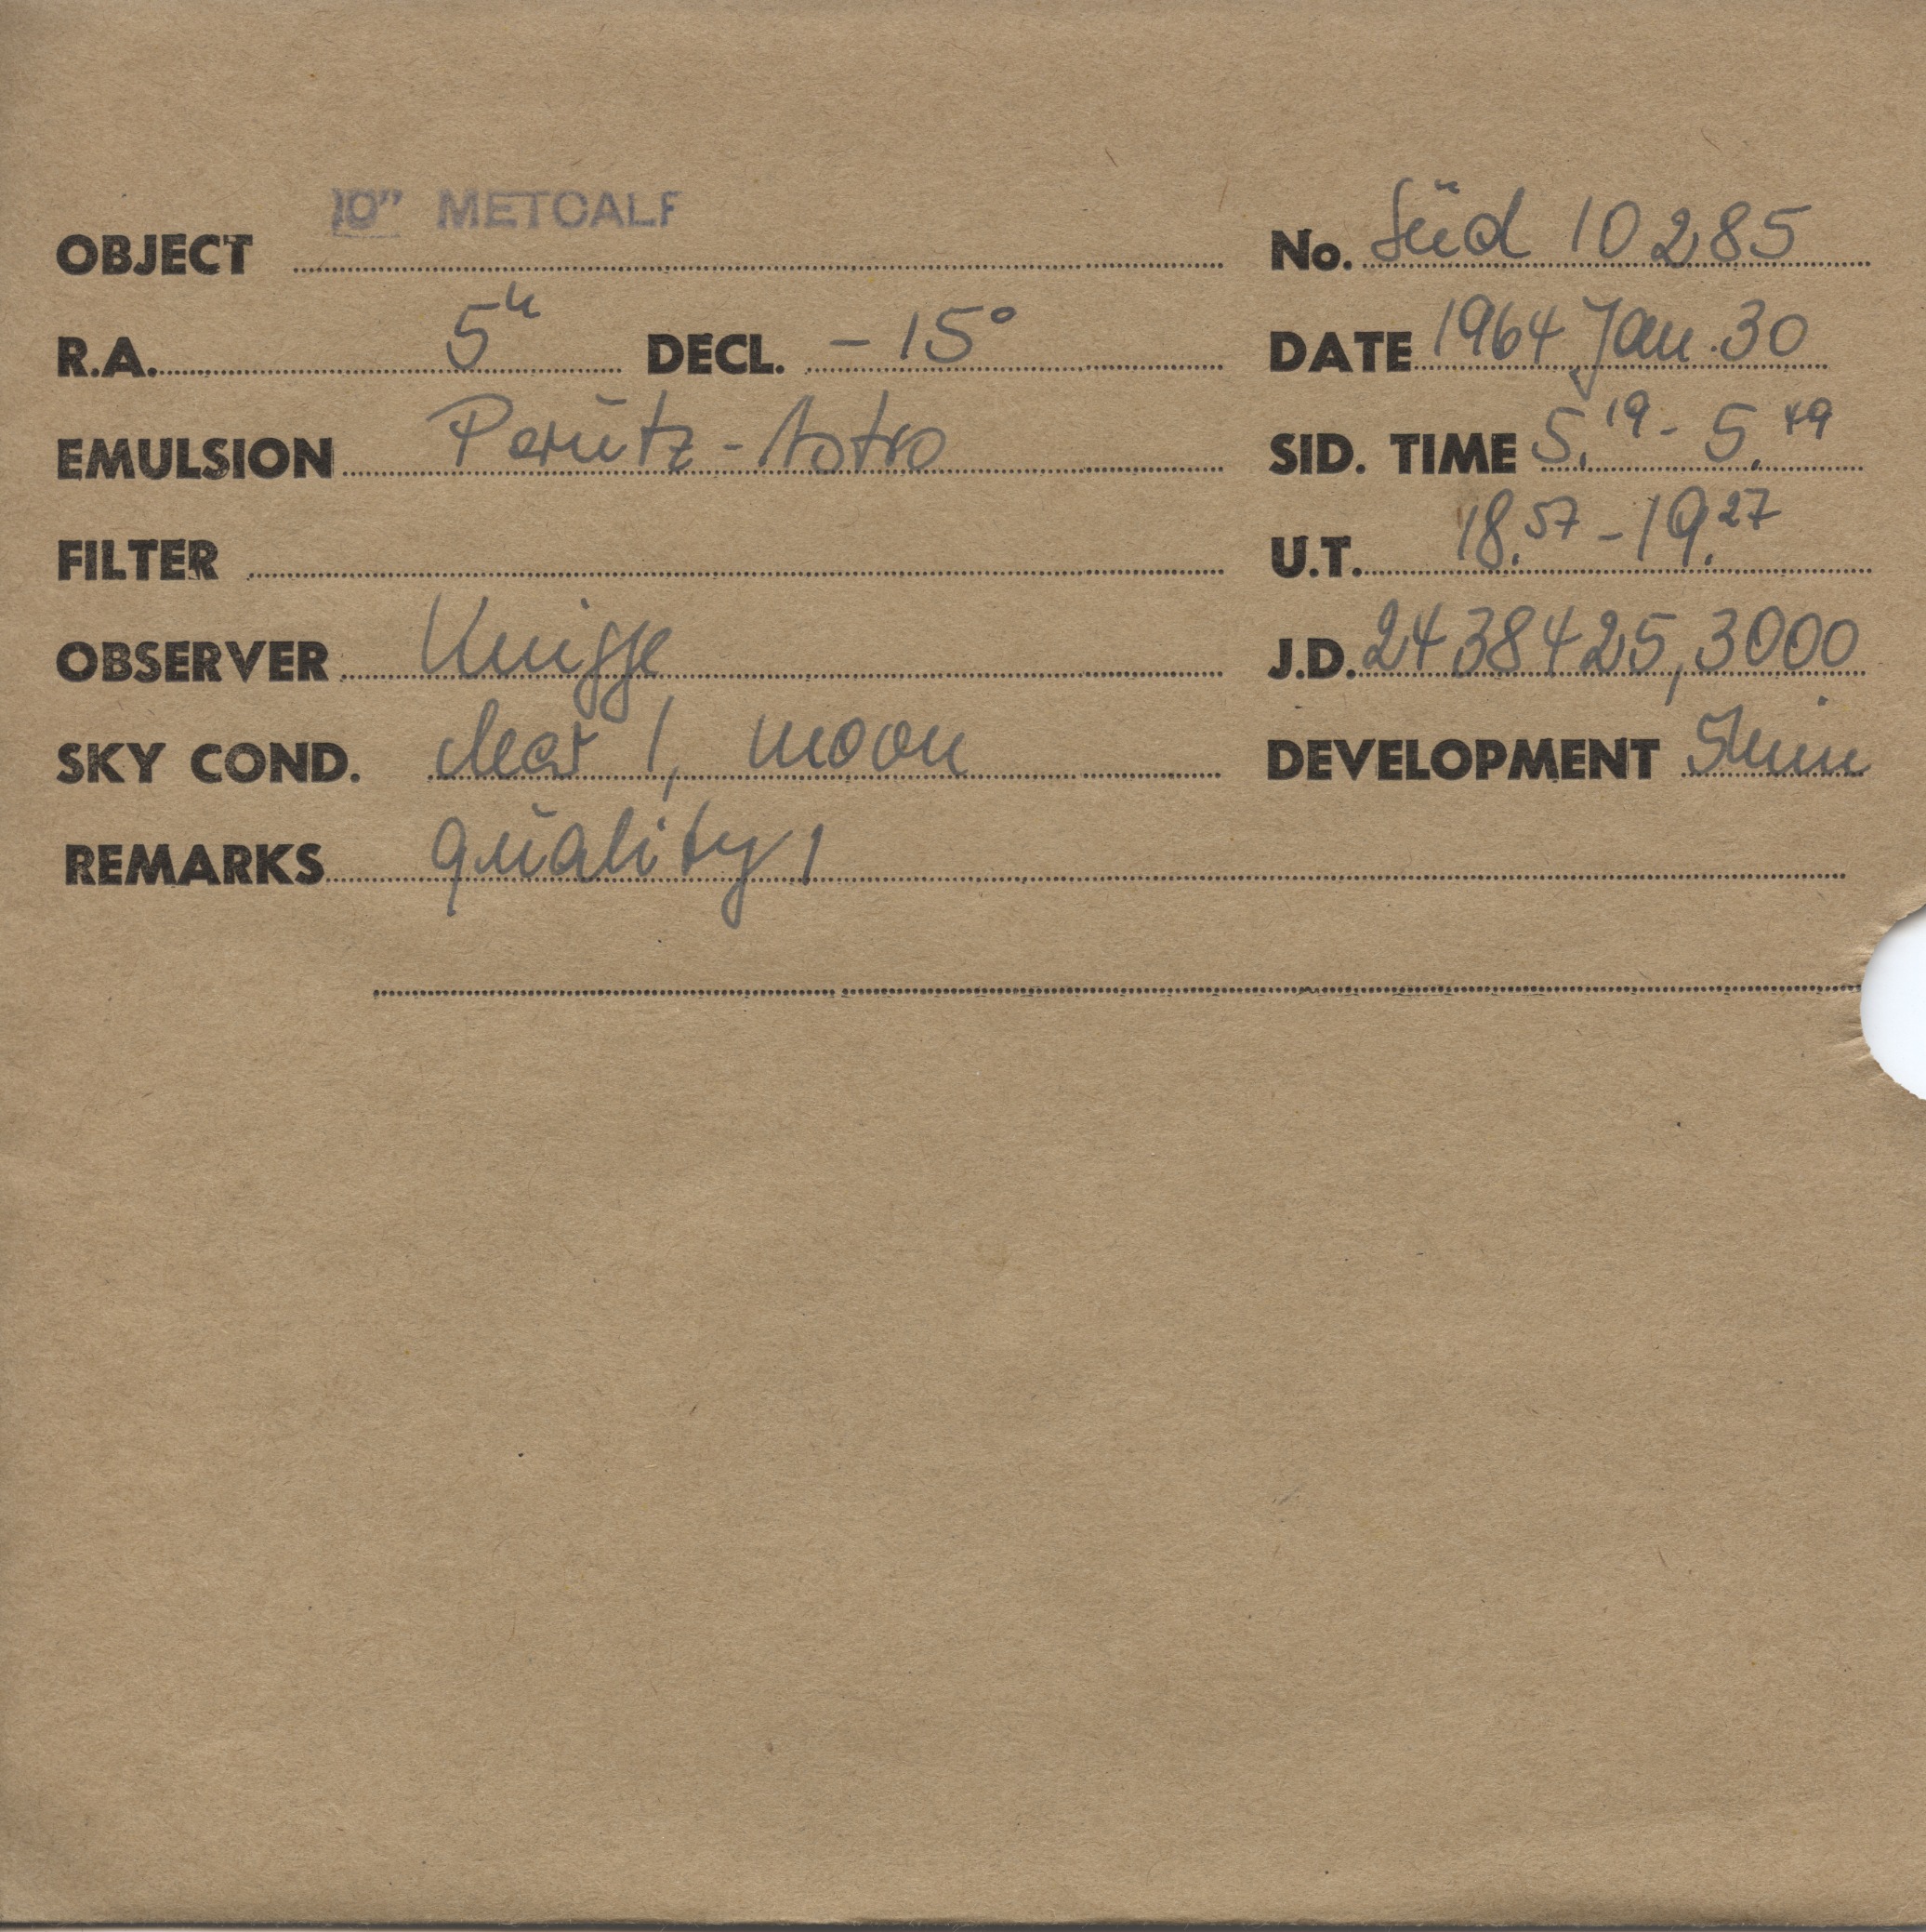 10" METCALF
OBJECT No. Süd 10285
R.A. 5h DECL. -15° DATE 1964 Jan. 30
EMULSION Perutz-Astro SID. TIME 5.19 - 5.49
FILTER U.T. 18.57 - 19.27
OBSERVER Knigge J.D. 2438425,3000
SKY COND. clear 1, moon DEVELOPMENT 5min
REMARKS quality 1